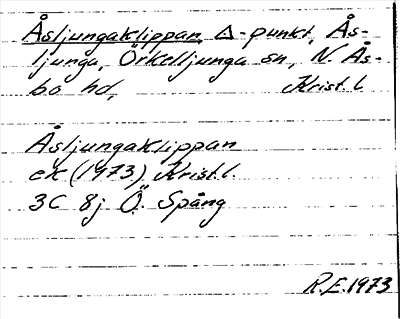 Åsljungaklippan, Δ-punkt, Ås-
ljunga, Örkelljunga sn, N. Ås-
bo hd, Krist. l
Åsljungaklippan
ek (1973) Krist. l.
3C 8j Ö. Spång
R.E. 1973